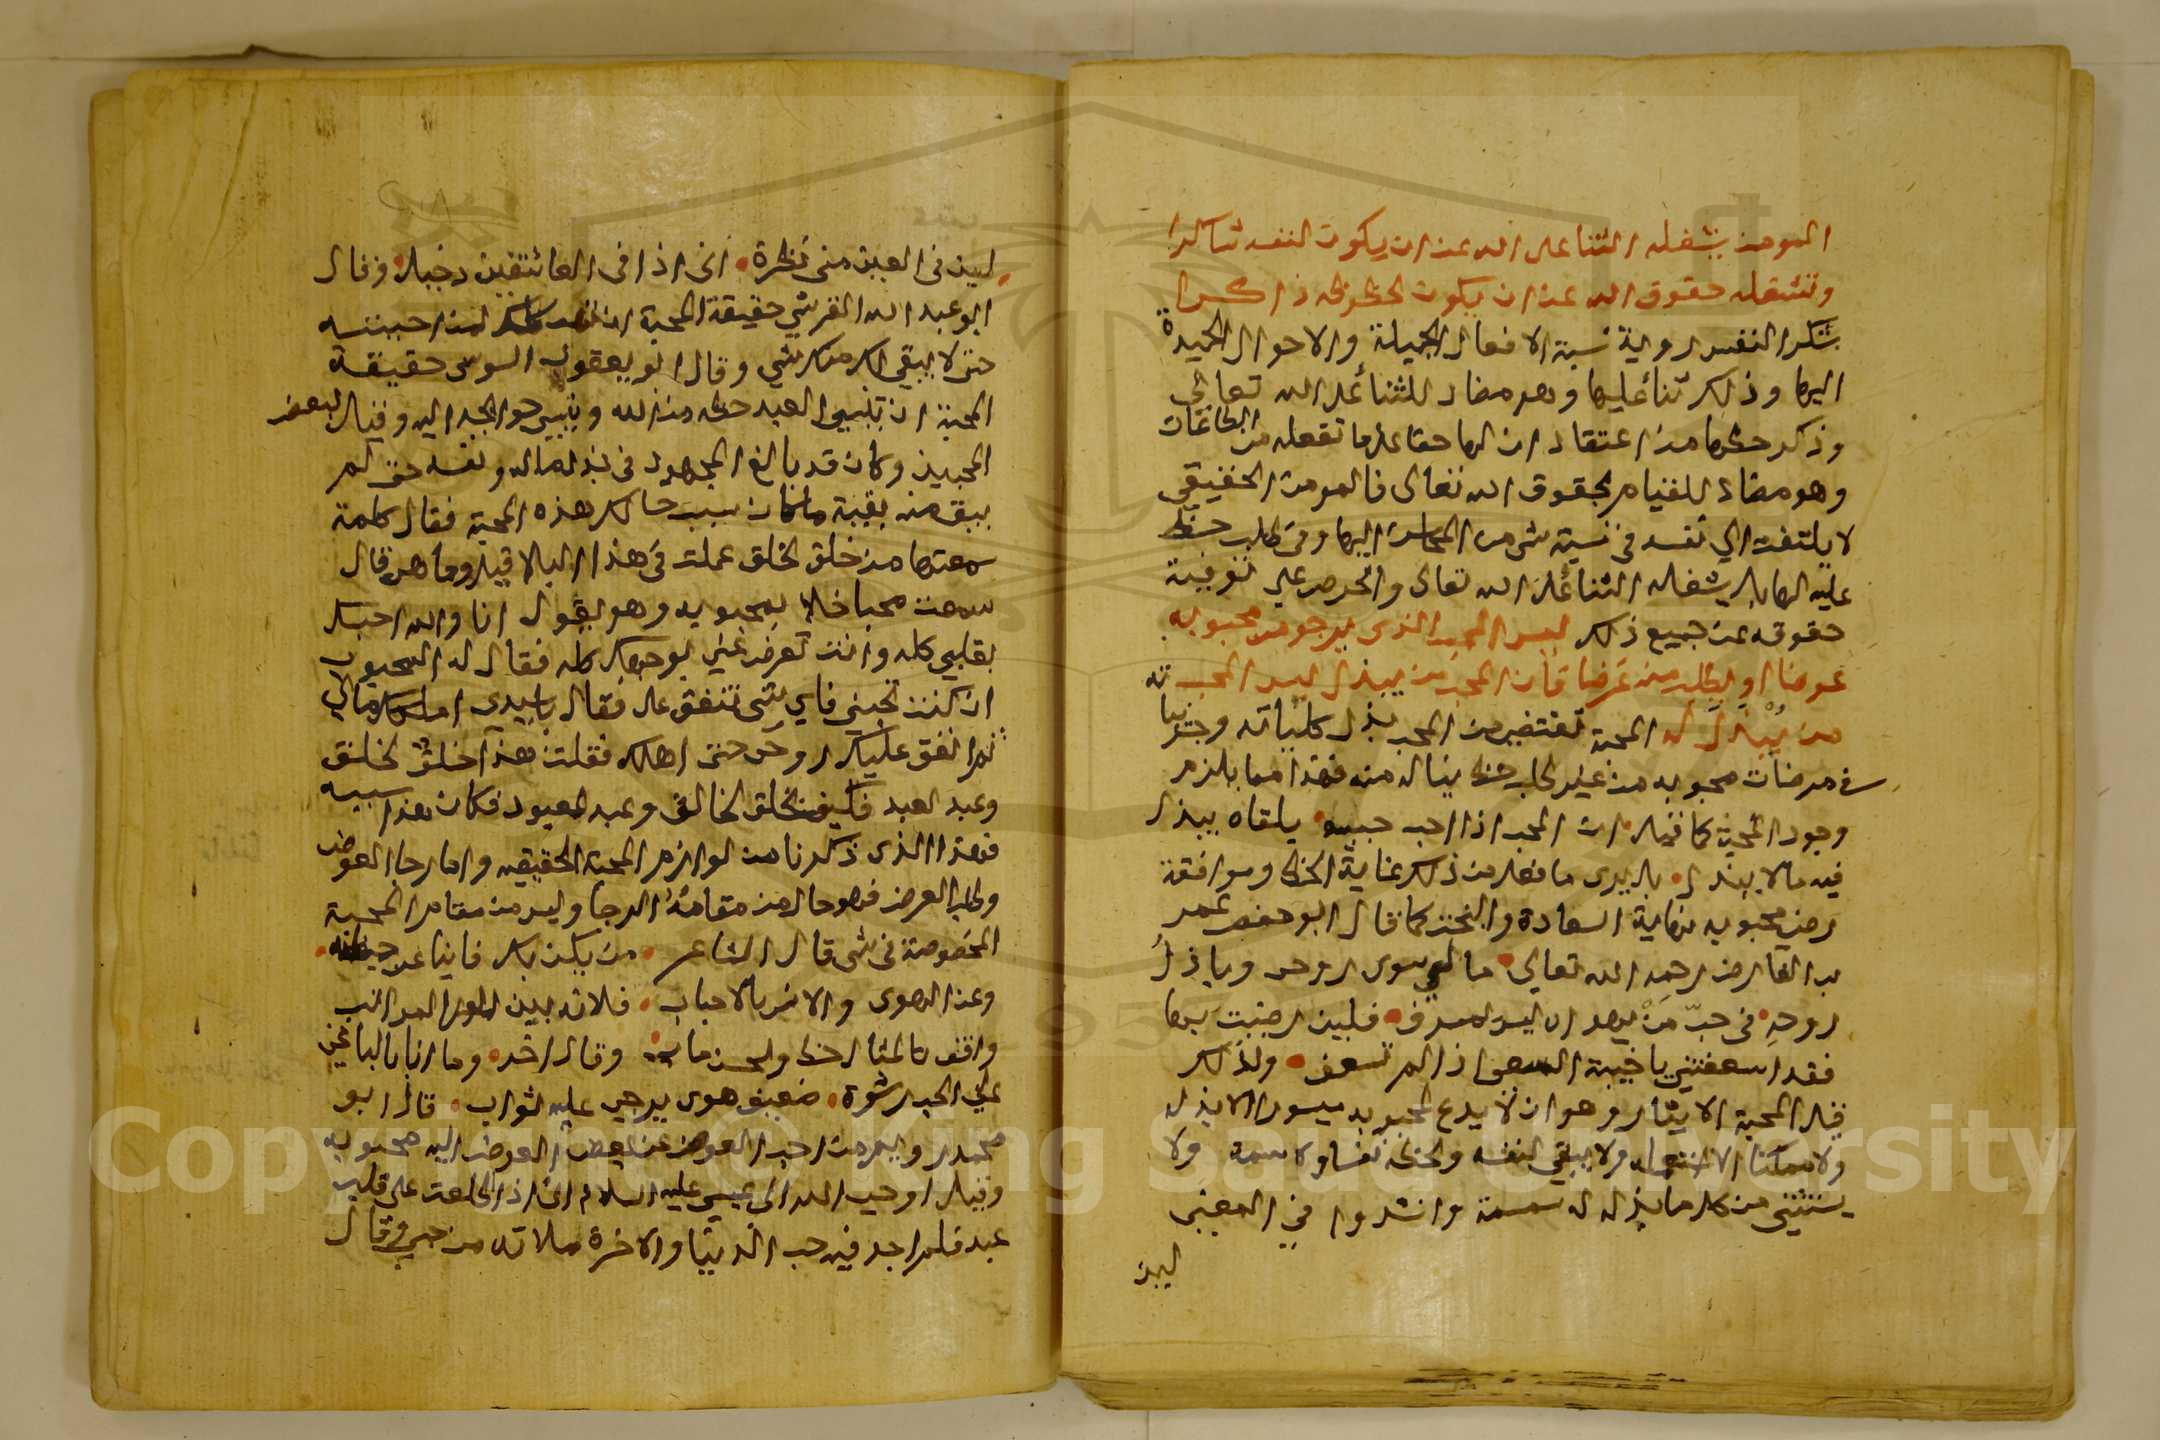 المومن يشغله الثنا على الله عن ان يكون لنفسه شاكرا
وتشغله حقوق الله عن ان يكون لحظوظه ذاكرا
شكر النفس روية نسبة الافعال الجميلة والاحوال الحميدة
اليها وذلك ثناء عليها وهو مضاد للثناء على الله تعالي
وذكر حظها من اعتقاد ان لها حقا على ما تفعله من الطاعات
وهو مضاد للقيام بحقوق الله تعالى فالمومن الحقيقي
لا يلتفت الي نفسه في نسبة شي من المحاسن اليها وفي طلب حظ
عليه لها بل يشغله الثناء على الله تعالى والحرص على توفية
حقوقه عن جميع ذلك ليس المحب الذى يرجو من محبوبه
عوضا او يطلب منه غرضا فان المحب من يبذل ليس المحب
من يُبْذَلُ له المحبة تقتضي من المحب بذل كلياته وجزئياته
في مرضات محبوبه من غير طلب حظ يناله منه فهذا مما يلزم
وجود المحبة كما قيل ان المحب اذا احب حبيبه يلقاه يبذل
فيه مالا يبذل بل يرى ما فعل من ذلك غاية الحظ وموافقة
رضى محبوبه نهاية السعادة والبخت كما قال ابو حفص عمر
بن الفارض رحمه الله تعالي مالي سوى روحى وباذلُ
روحهِ في حبّ مَنْ يهواه ليس بمسرف فلئن رضيتَ بها
فقد اسعفتني يا خيبة المسعى اذا لم تسعف ولذلك
قيل المحبة الايثار وهو ان لا يدع لمحبوبه ميسورا الا بذله
ولا ممكنا الا ولا يبقي لنفسه ولحظه نفسا ولا سمة ولا
يستثني من كل ما بذله له سمسمة وانشدوا في المعنى
لين
لين بقى في العين منى نظرة انى اذا فى العاشقين دخيل وقال
ابو عبد الله القرشي حقيقة المحبة ان تهب كلك لمن احببته
حتى لا يبقي لك منك شي وقال ابو يعقوب السوسى حقيقة
المحبة ان ينسى العبد حظه من الله وينسى حوائجه اليه وقيل لبعض
المحبين وكان قد بالغ المجهود فى بذله ماله ونفسه حتى لم
يبق منه بقية ما كان سبب حالك هذه المحبة فقال كلمة
سمعتها من خلق لخلق عملت فى هذا البلا قيل وما هى قال
سمعت محبا خلا بمحبوبه وهو يقول انا والله احبك
بقلبي كله وانت تعرض عني بوجهك كله فقال له المحبوب
ان كنت تحبني فاي شي تنفق على فقال يا سيدي املكك مالي
ثم انفق عليك روحى حتى اهلك فقلت هذا خلق لخلق
وعبد لعبد فكيف بخلق لخالق وعبد لمعبود فكان هذا سببه
فهذا الذى ذكرنا من لوازم المحبة الحقيقيه واما رجا العوض
وطلب الغرض فهو حال من مقامهُ الرجا وليس من مقام المحبة
المخصوصة فى شى قال الشاعر من يكن بك فانيا عن حظه
وعن الهوى والانس بالاحباب فلانه بين المراتب
واقف لمثال حظ ولحسن ماب وقال اخر وما انا بالباغي
على الحب رشوة ضعيف هوى يرجى عليه ثواب قال ابو
محمد رويم من احب العوض بغض العوض اليه محبوبه
وقيل اوحى الله الى عيسي عليه السلام انى اذا اطلعت على قلب
عبد فلم اجد فيه حب الدنيا والاخرة ملاته من حبي قال
Copyright © King Saud University